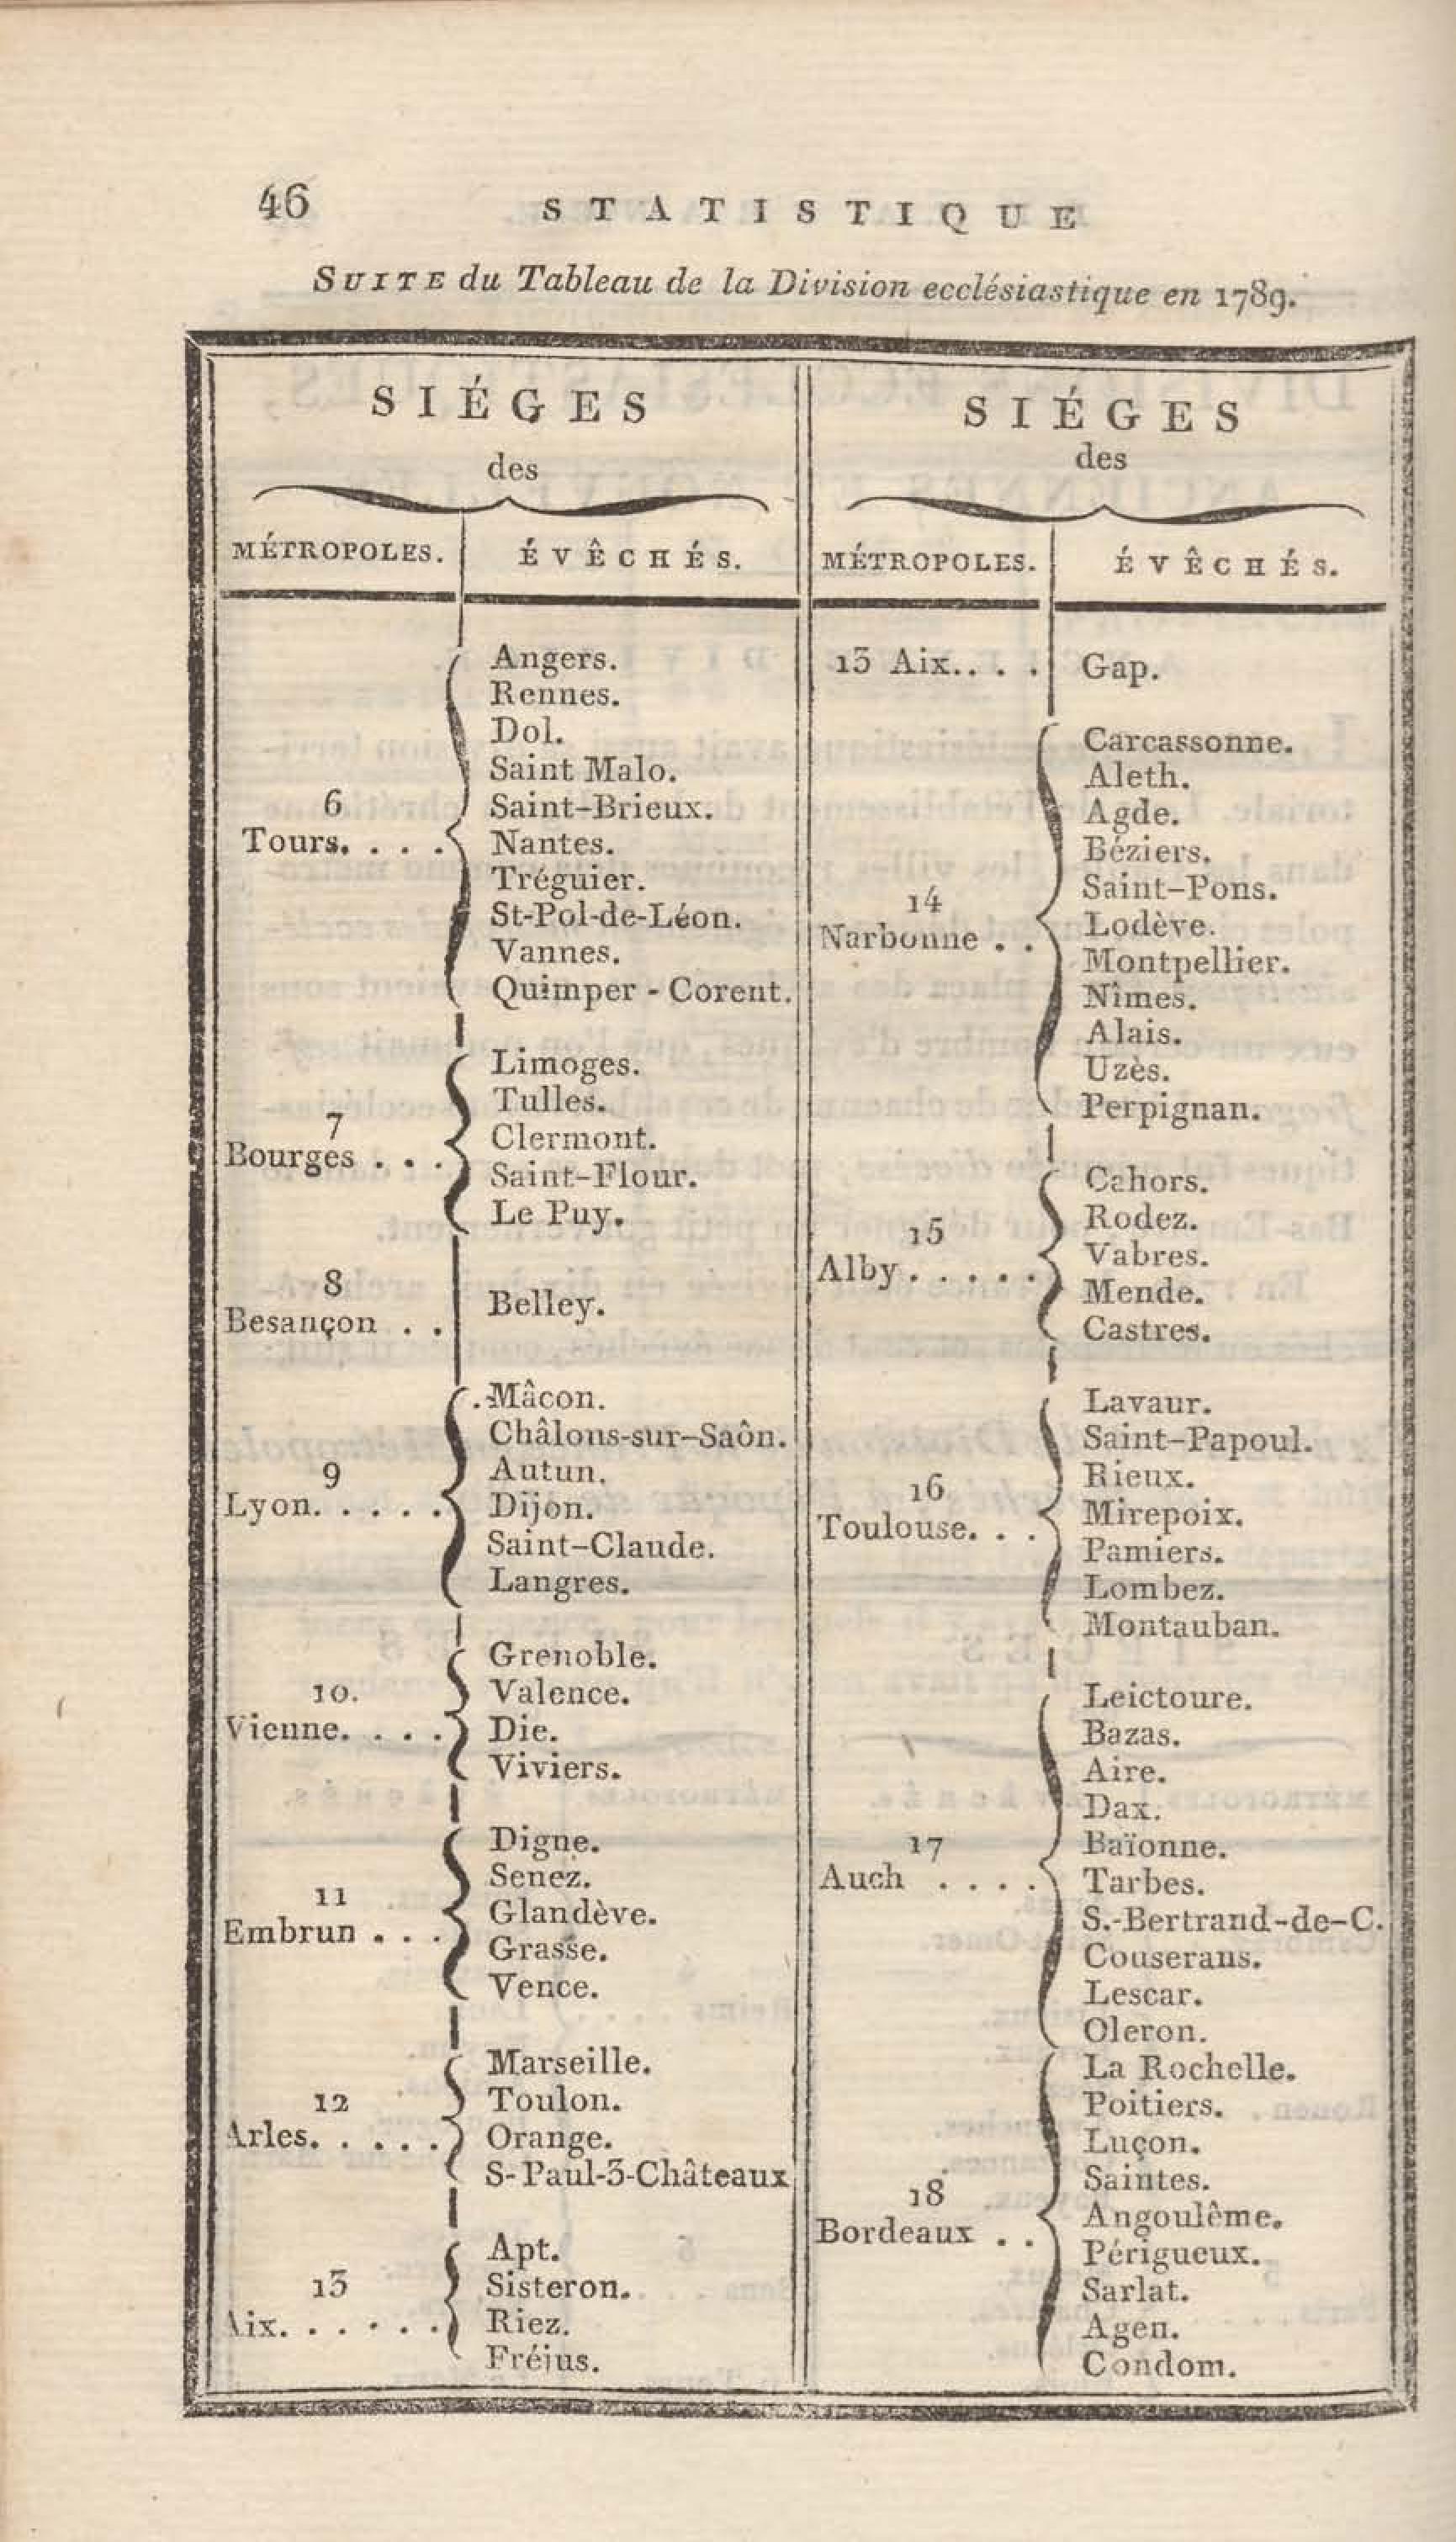 46 STATISTIQUE
SUITE du Tableau de la Division ecclésiastique en 1789.
SIÉGES
des
MÉTROPOLES. ÉVÊCHÉS.
6
Tours. . . .
Angers.
Rennes.
Dol.
Saint Malo.
Saint-Brieux.
Nantes.
Tréguier.
St-Pol-de-Léon.
Vannes.
Quimper - Corent.
7
Bourges . . .
Limoges.
Tulles.
Clermont.
Saint-Flour.
Le Puy.
8
Besançon . .
Belley.
9
Lyon. . . . .
Mâcon.
Châlons-sur-Saôn.
Autun.
Dijon.
Saint-Claude.
Langres.
10.
Vienne. . . .
Grenoble.
Valence.
Die.
Viviers.
11
Embrun . . .
Digne.
Senez.
Glandève.
Grasse.
Vence.
12
Arles. . . . .
Marseille.
Toulon.
Orange.
S-Paul-3-Châteaux
13
Aix. . . . . .
Apt.
Sisteron.
Riez.
Fréjus.
SIÉGES
des
MÉTROPOLES. ÉVÊCHÉS.
13 Aix.. . . Gap.
14
Narbonne . .
Carcassonne.
Aleth.
Agde.
Béziers.
Saint-Pons.
Lodève.
Montpellier.
Nîmes.
Alais.
Uzès.
Perpignan.
15
Alby. . . . .
Cahors.
Rodez.
Vabres.
Mende.
Castres.
16
Toulouse. . .
Lavaur.
Saint-Papoul.
Rieux.
Mirepoix.
Pamiers.
Lombez.
Montauban.
17
Auch . . . .
Leictoure.
Bazas.
Aire.
Dax.
Baïonne.
Tarbes.
S.-Bertrand-de-C.
Couserans.
Lescar.
Oleron.
18
Bordeaux . .
La Rochelle.
Poitiers.
Luçon.
Saintes.
Angoulême.
Périgueux.
Sarlat.
Agen.
Condom.